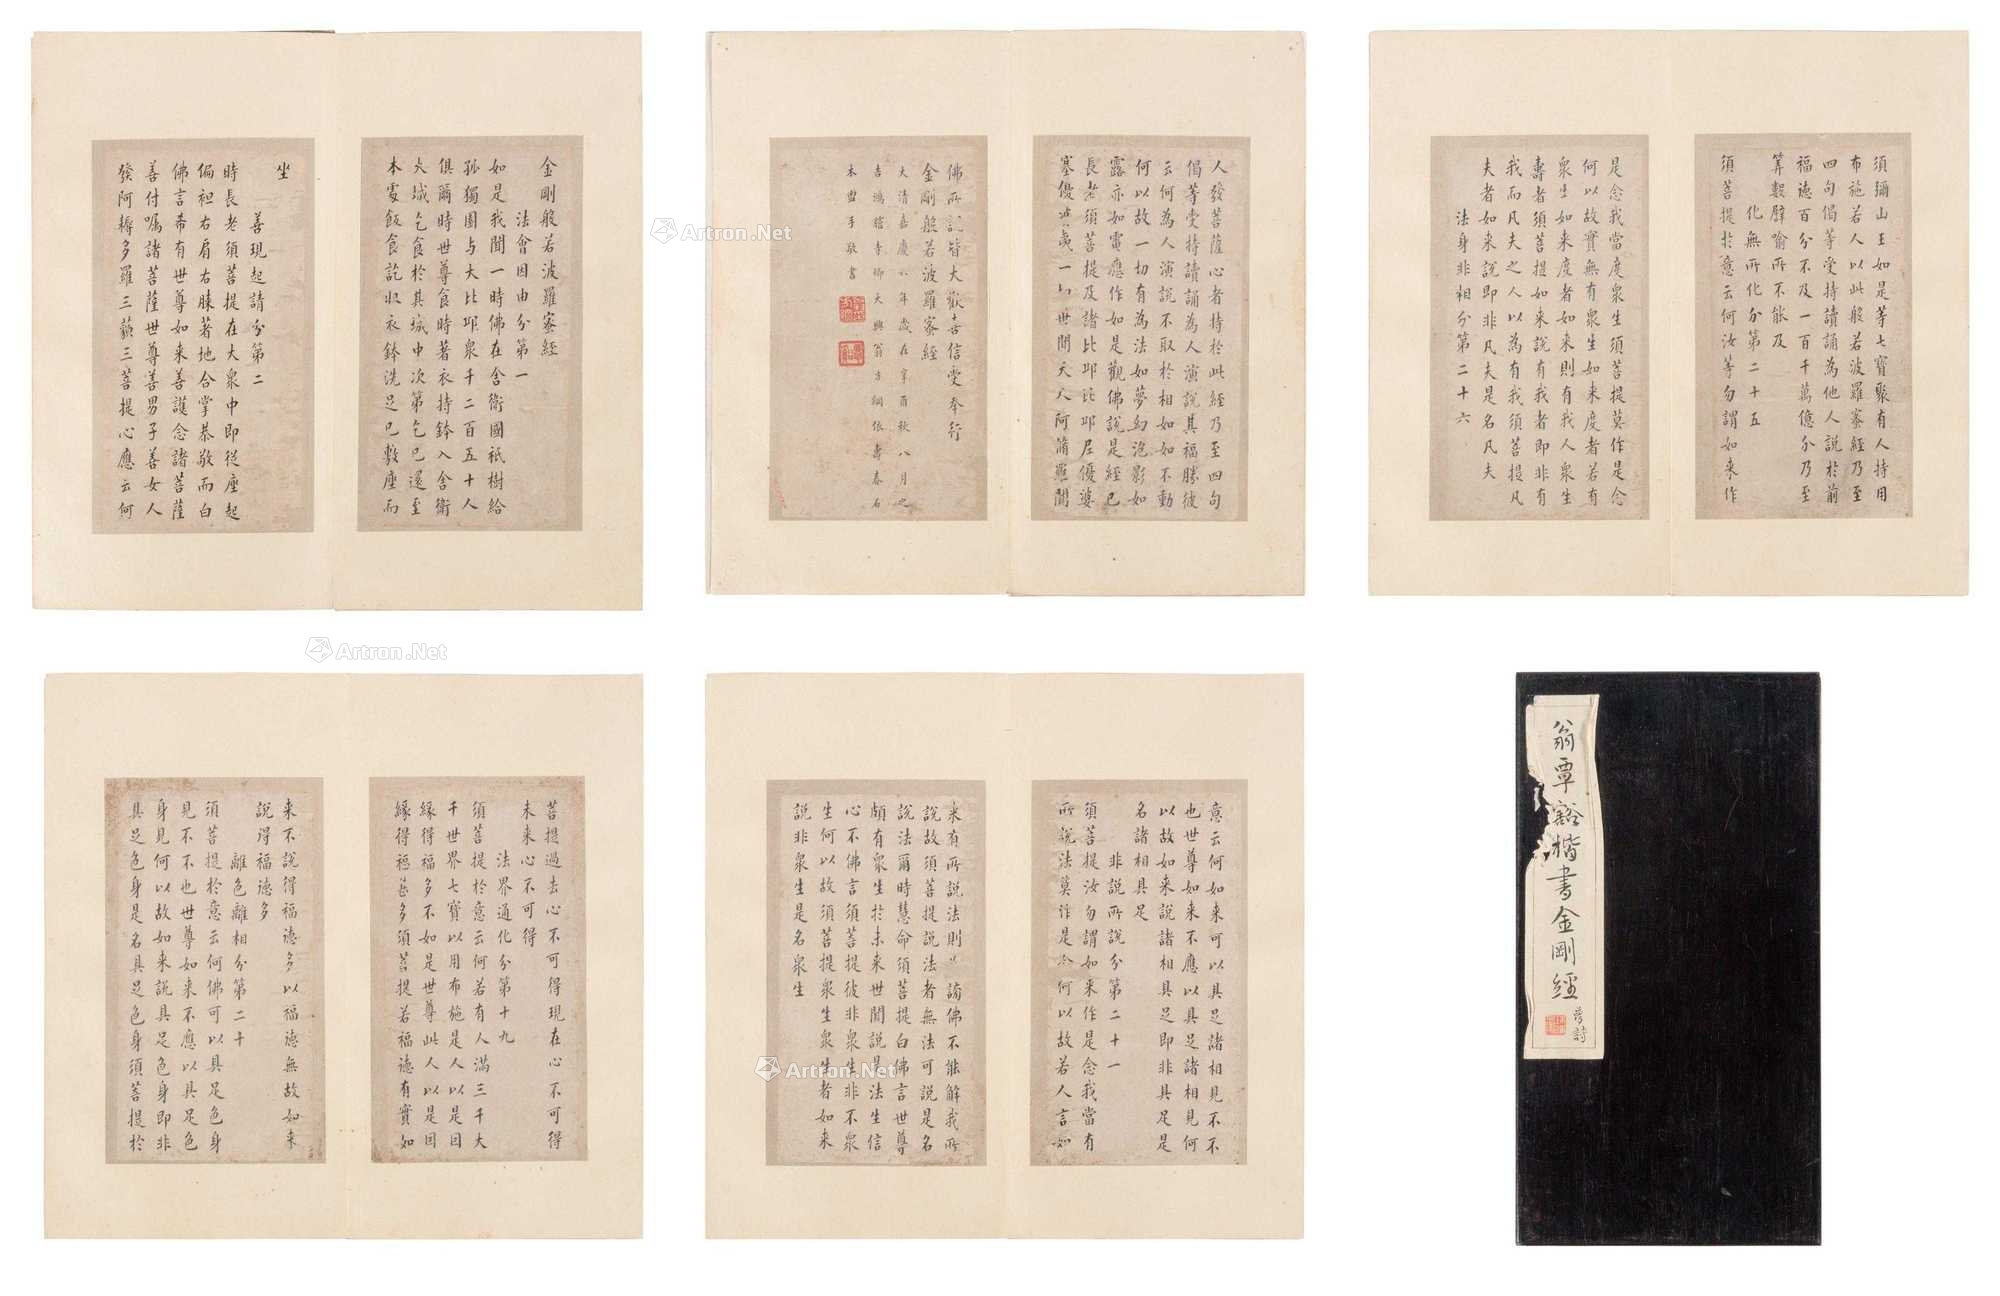 金剛般若波羅蜜經
法會因由分第一
如是我聞一時佛在舍衛國祇樹給
孤獨園与大比邱衆千二百五十人
俱爾時世尊食時著衣持鉢入舍衛
大城乞食於其城中次第乞巳還至
本處飯食訖収衣鉢洗足巳敷座而
坐
善現起請分第二
時長老須菩提在大衆中即從座起
偏袒右肩右膝著地合掌恭敬而白
佛言希有世尊如来善護念諸菩薩
善付囑諸菩薩世尊善男子善女人
發阿耨多羅三藐三菩提心應云何
人發菩薩心者持於此經乃至四句
偈等受持讀誦為人演說其福勝彼
云何為人演說不取於相如如不動
何以故一切有為法如夢幻泡影如
露亦如電應作如是觀佛說是經已
長老須菩提及諸比邱比邱尼優婆
塞優婆夷一切世間天人阿脩羅聞
佛所說皆大歡喜信受奉行
金剛般若波羅蜜經
大清嘉慶六年歲在辛酉秋八月之
吉鴻臚寺卿大興翁方綱依壽春石
本盥手敬書
須彌山王如是等七寶聚有人持用
布施若人以此般若波羅蜜經乃至
四句偈等受持讀誦為他人說於前
福德百分不及一百千萬億分乃至
筭數譬喻所不能及
化無所化分第二十五
須菩提於意云何汝等勿謂如来作
是念我當度衆生須菩提莫作是念
何以故實無有衆生如来度者若有
衆生如来度者如来則有我人衆生
壽者須菩提如来說有我者即非有
我而凡夫之人以為有我須菩提凡
夫者如来說即非凡夫是名凡夫
法身非相分第二十六
菩提過去心不可得現在心不可得
未来心不可得
法界通化分第十九
須菩提於意云何若有人滿三千大
千世界七寶以用布施是人以是因
緣得福多不如是世尊此人以是因
緣得福甚多須菩提若福德有實如
来不說得福德多以福德無故如来
說得福德多
離色離相分第二十
須菩提於意云何佛可以具足色身
見不不也世尊如来不應以具足色
身見何以故如来說具足色身即非
具足色身是名具足色身須菩提於
意云何如来可以具足諸相見不不
也世尊如来不應以具足諸相見何
以故如来說諸相具足即非具足是
名諸相具足
非說所說分第二十一
須菩提汝勿謂如来作是念我當有
所說法莫作是念何以故若人言如
来有所說法則為謗佛不能解我所
說故須菩提說法者無法可說是名
說法爾時慧命須菩提白佛言世尊
頗有衆生於未来世聞說是法生信
心不佛言須菩提彼非衆生非不衆
生何以故須菩提衆生衆生者如来
說非衆生是名衆生
翁覃谿楷書金剛經
Artron.Net
Artron.Net
Artron.Net